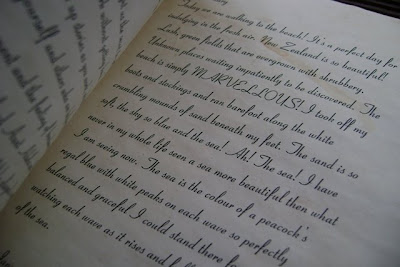 Today we are walking to the beach! It's a perfect day for
indulging in the fresh air. New Zealand is so beautiful!
Lush, green fields that are overgrown with shrubbery.
Unknown places waiting impatiently to be discovered. The
beach is simply MARVELLOUS! I took off my
boots and stockings and ran barefoot along the white
crumbling mounds of sand beneath my feet. The sand is so
soft, the sky so blue and the sea! Ah! The sea! I have
never in my whole life seen a sea more beautiful then what
I am seeing now. The sea is the colour of a peacock's
royal blue with white peaks on each wave so perfectly
balanced and graceful. I could stand there for
watching each wave as it rises and
of the sea.